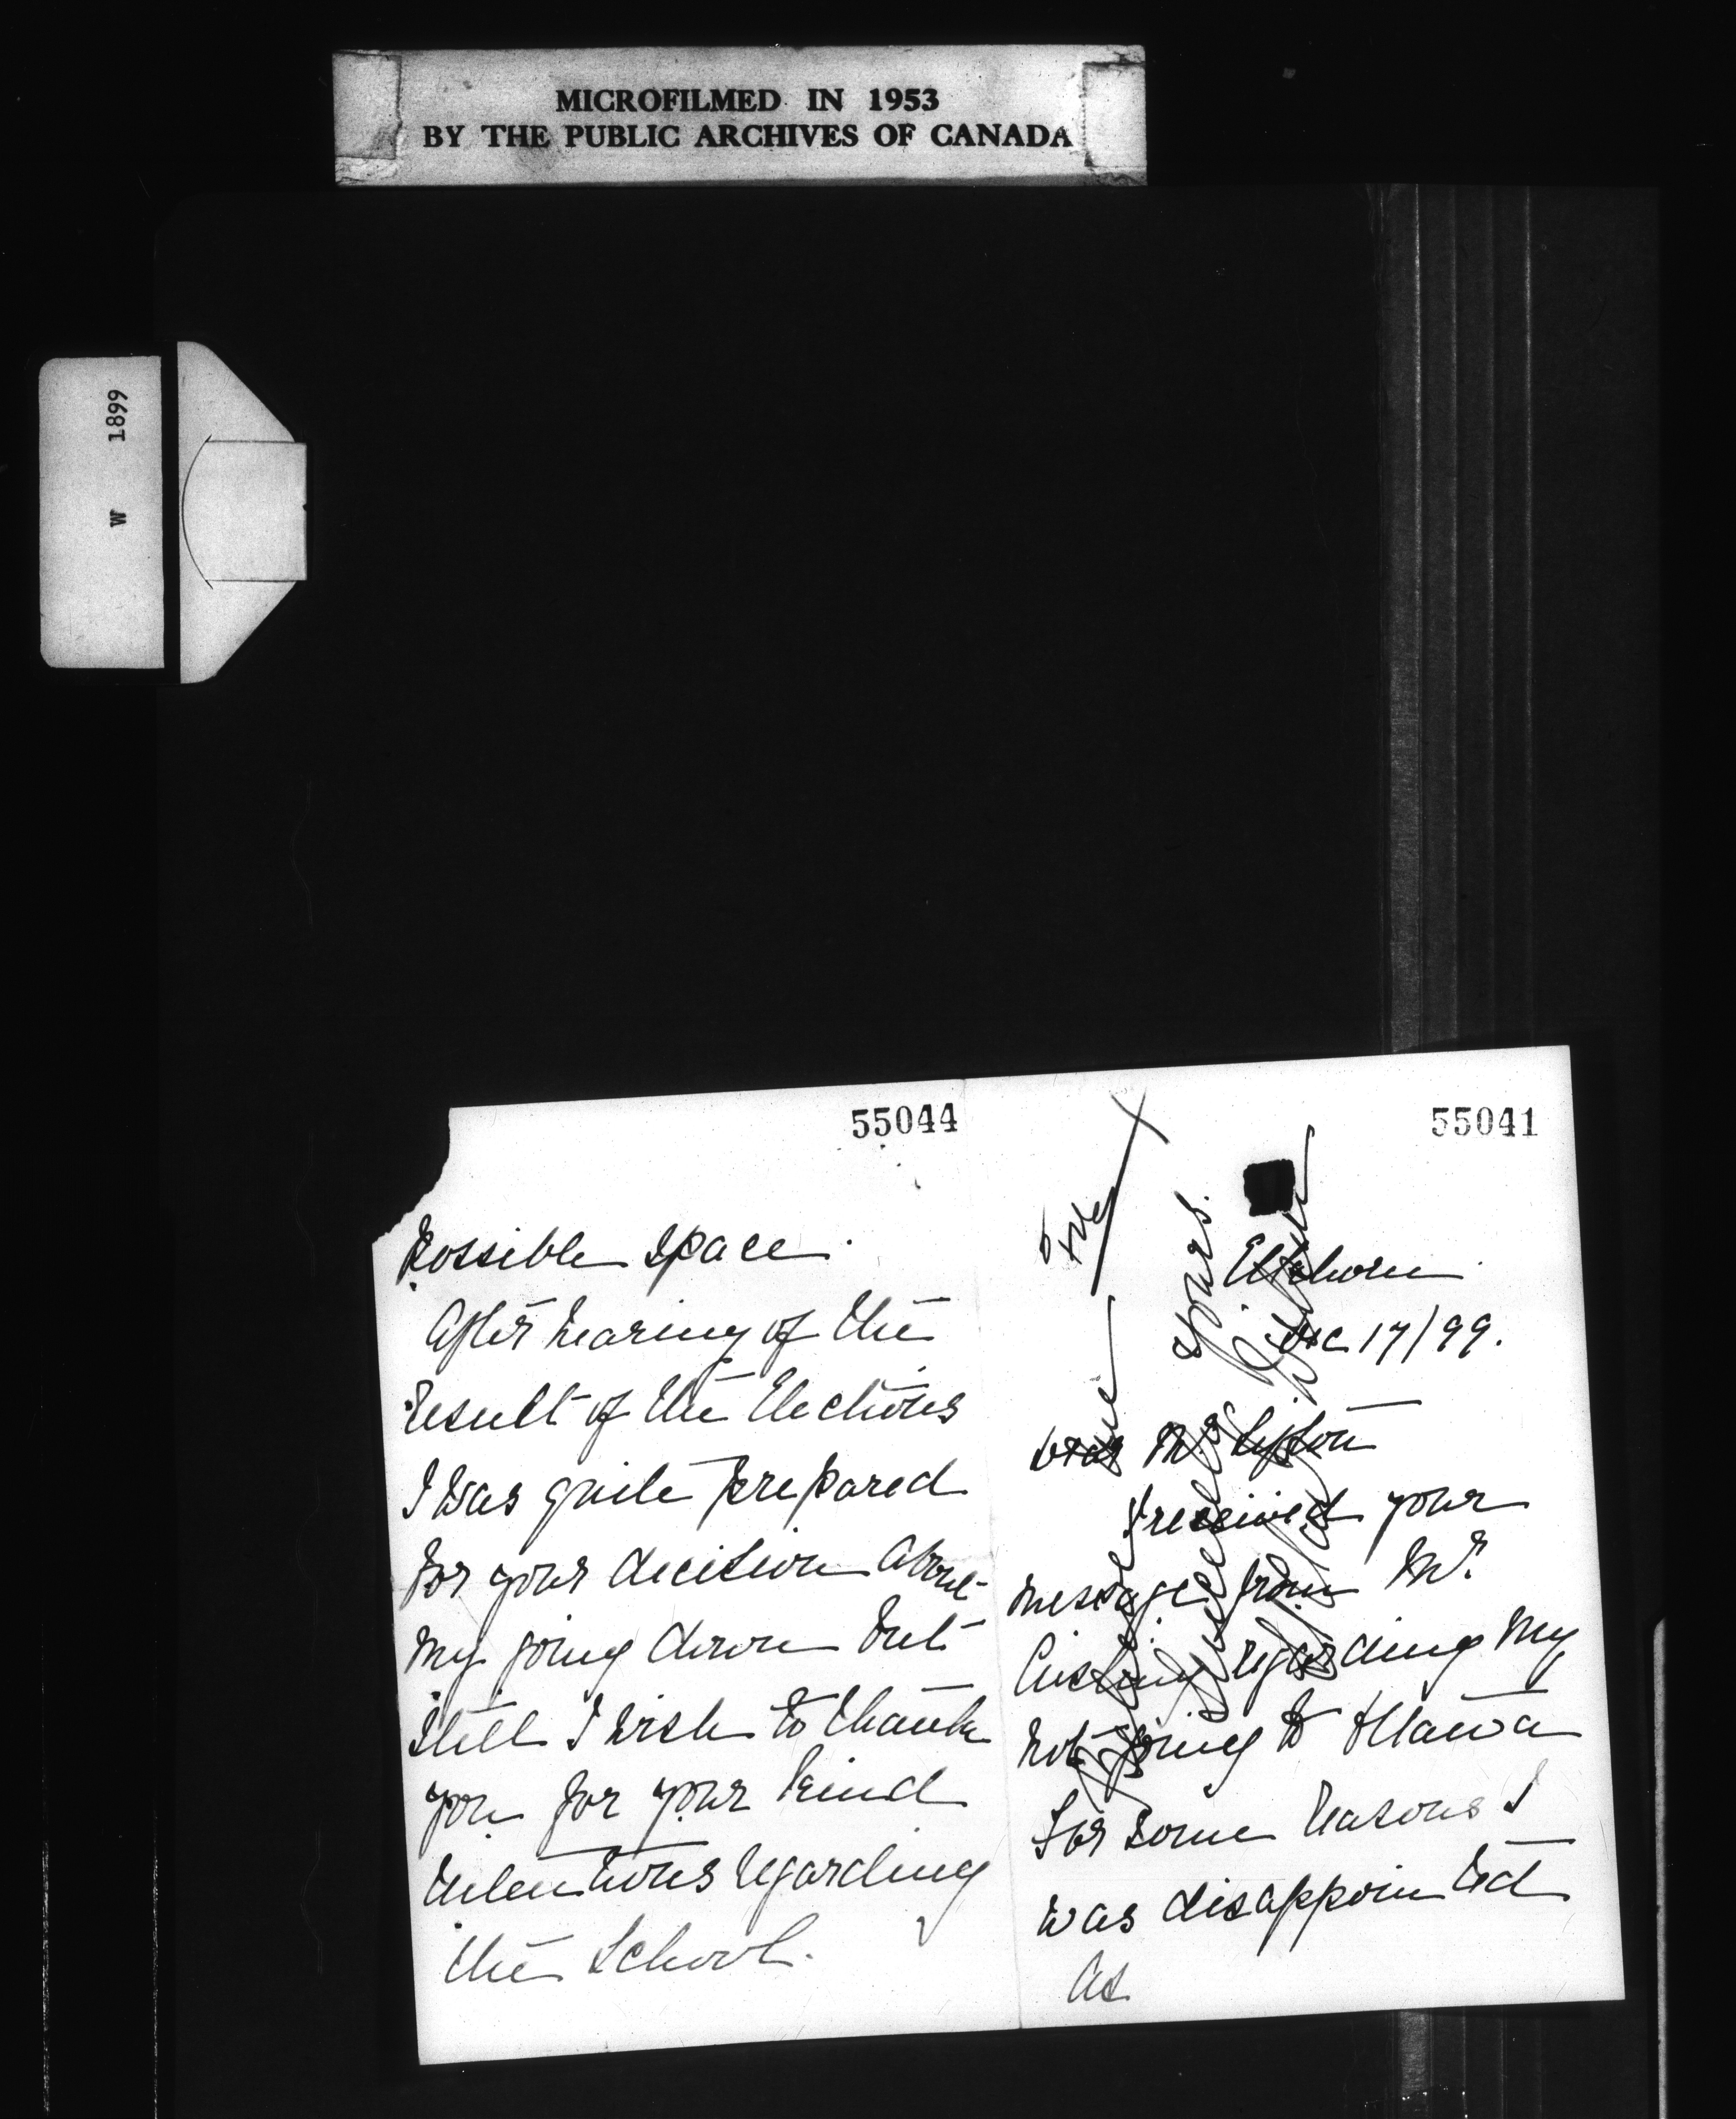 MICROFILMED IN 1953
BY THE PUBLIC ARCHIVES OF CANADA
W 1899
55044
Possible space.
After hearing of the
result of the Elections
I was quite prepared
for your decision about
my going down but
still I wish to thank
you for your kind
intentions regarding
the School.
55041
Elkhorn
Dec 17/99.
Dear Mr. Sifton
I received your
message from Mr.
regarding my
not going to Ottawa
for some reasons I
was disappointed
as